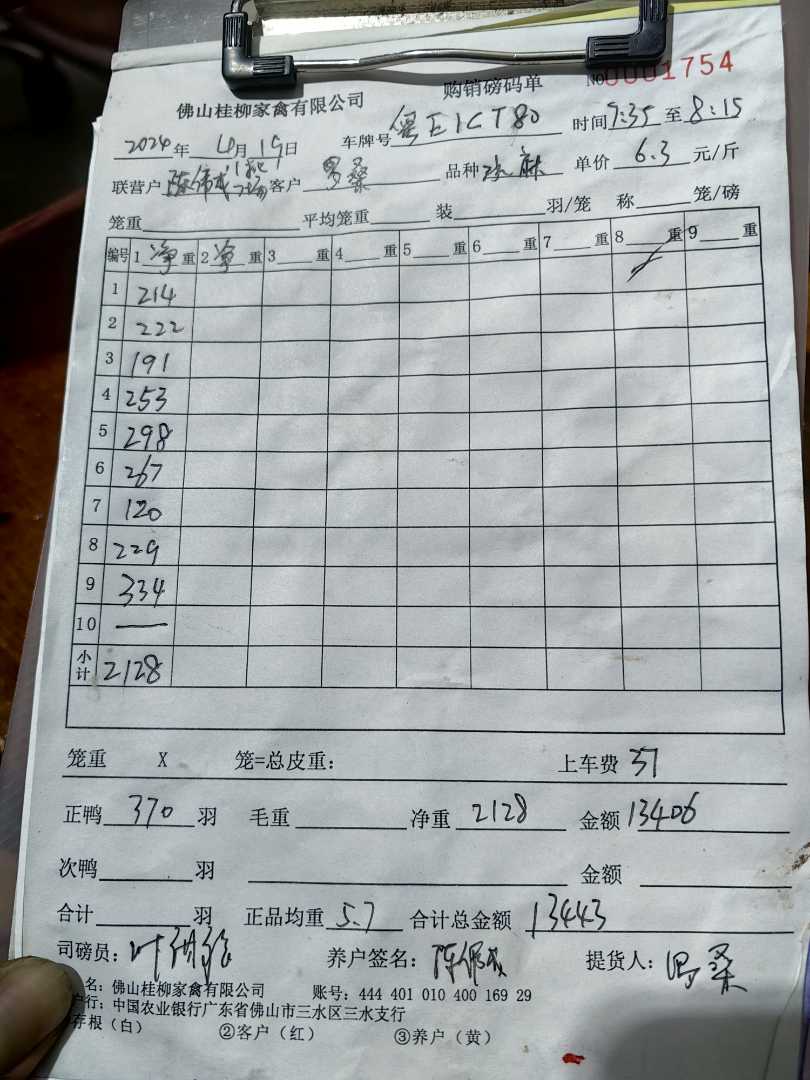 购销磅码单 No 0001754
佛山桂柳家禽有限公司
2024年 4月19日 车牌号 粤E1CT80 时间7:35至8:15
联营户 陈伟成 客户 品种 单价 6.3 元/斤
笼重 平均笼重 装 羽/笼 称 笼/磅
编号 1 净重 2 净重 3 重 4 重 5 重 6 重 7 重 8 重 9 重
1 214
2 222
3 191
4 253
5 298
6 267
7 120
8 229
9 334
10 —
小计 2128
笼重 X 笼=总皮重: 上车费 37
正鸭 370 羽 毛重 净重 2128 金额 13406
次鸭 羽 金额
合计 羽 正品均重 5.7 合计总金额 13443
司磅员: 养户签名: 陈伟成 提货人:
名: 佛山桂柳家禽有限公司 账号: 444 401 010 400 169 29
户行: 中国农业银行广东省佛山市三水区三水支行
存根（白） ②客户（红） ③养户（黄）